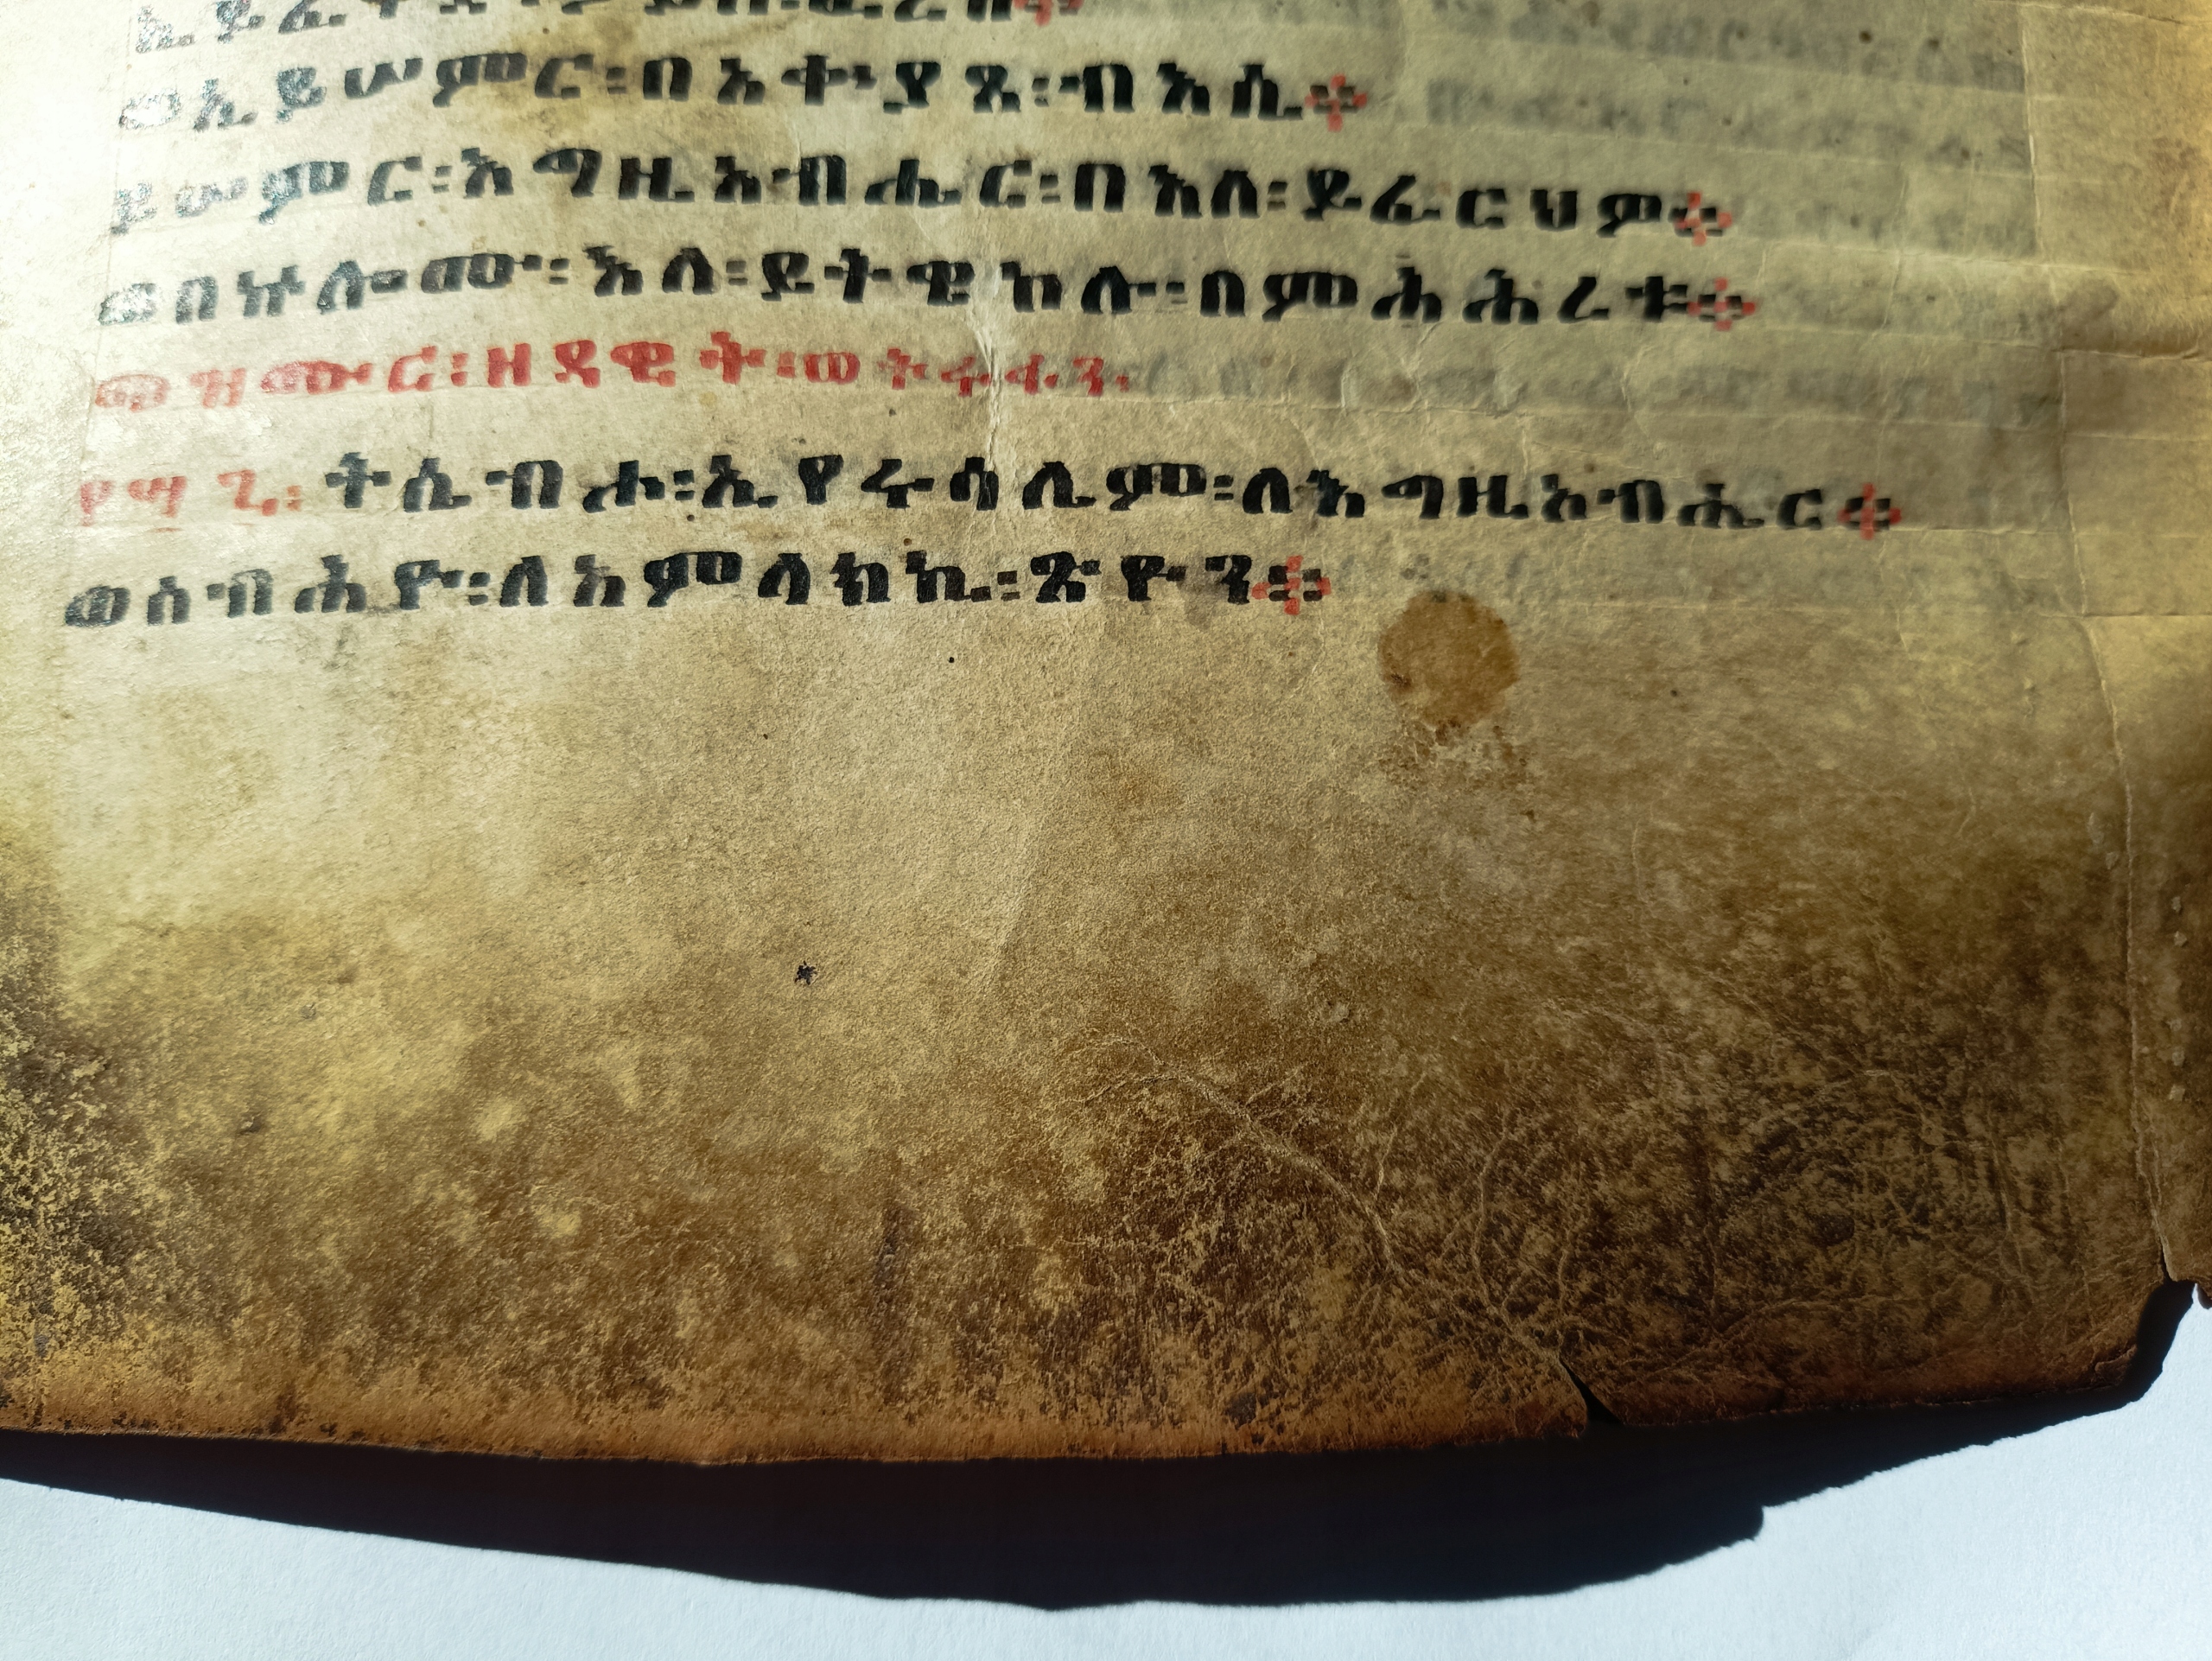 ወኢይሠምር፡በአቍያጺ፡ብእሲ።
ይሠምር፡እግዚአብሔር፡በእለ፡ይፈርህዎ።
ወበኵሎሙ፡እለ፡ይትዌከሉ፡በምሕሕረቱ።
መዝሙር፡ዘዳዊት፡ወ
፻፵፯፡ ትሴብሖ፡ኢየሩሳሌም፡ለእግዚአብሔር።
ወሰብሕዮ፡ለአምላክኪ፡ጽዮን።